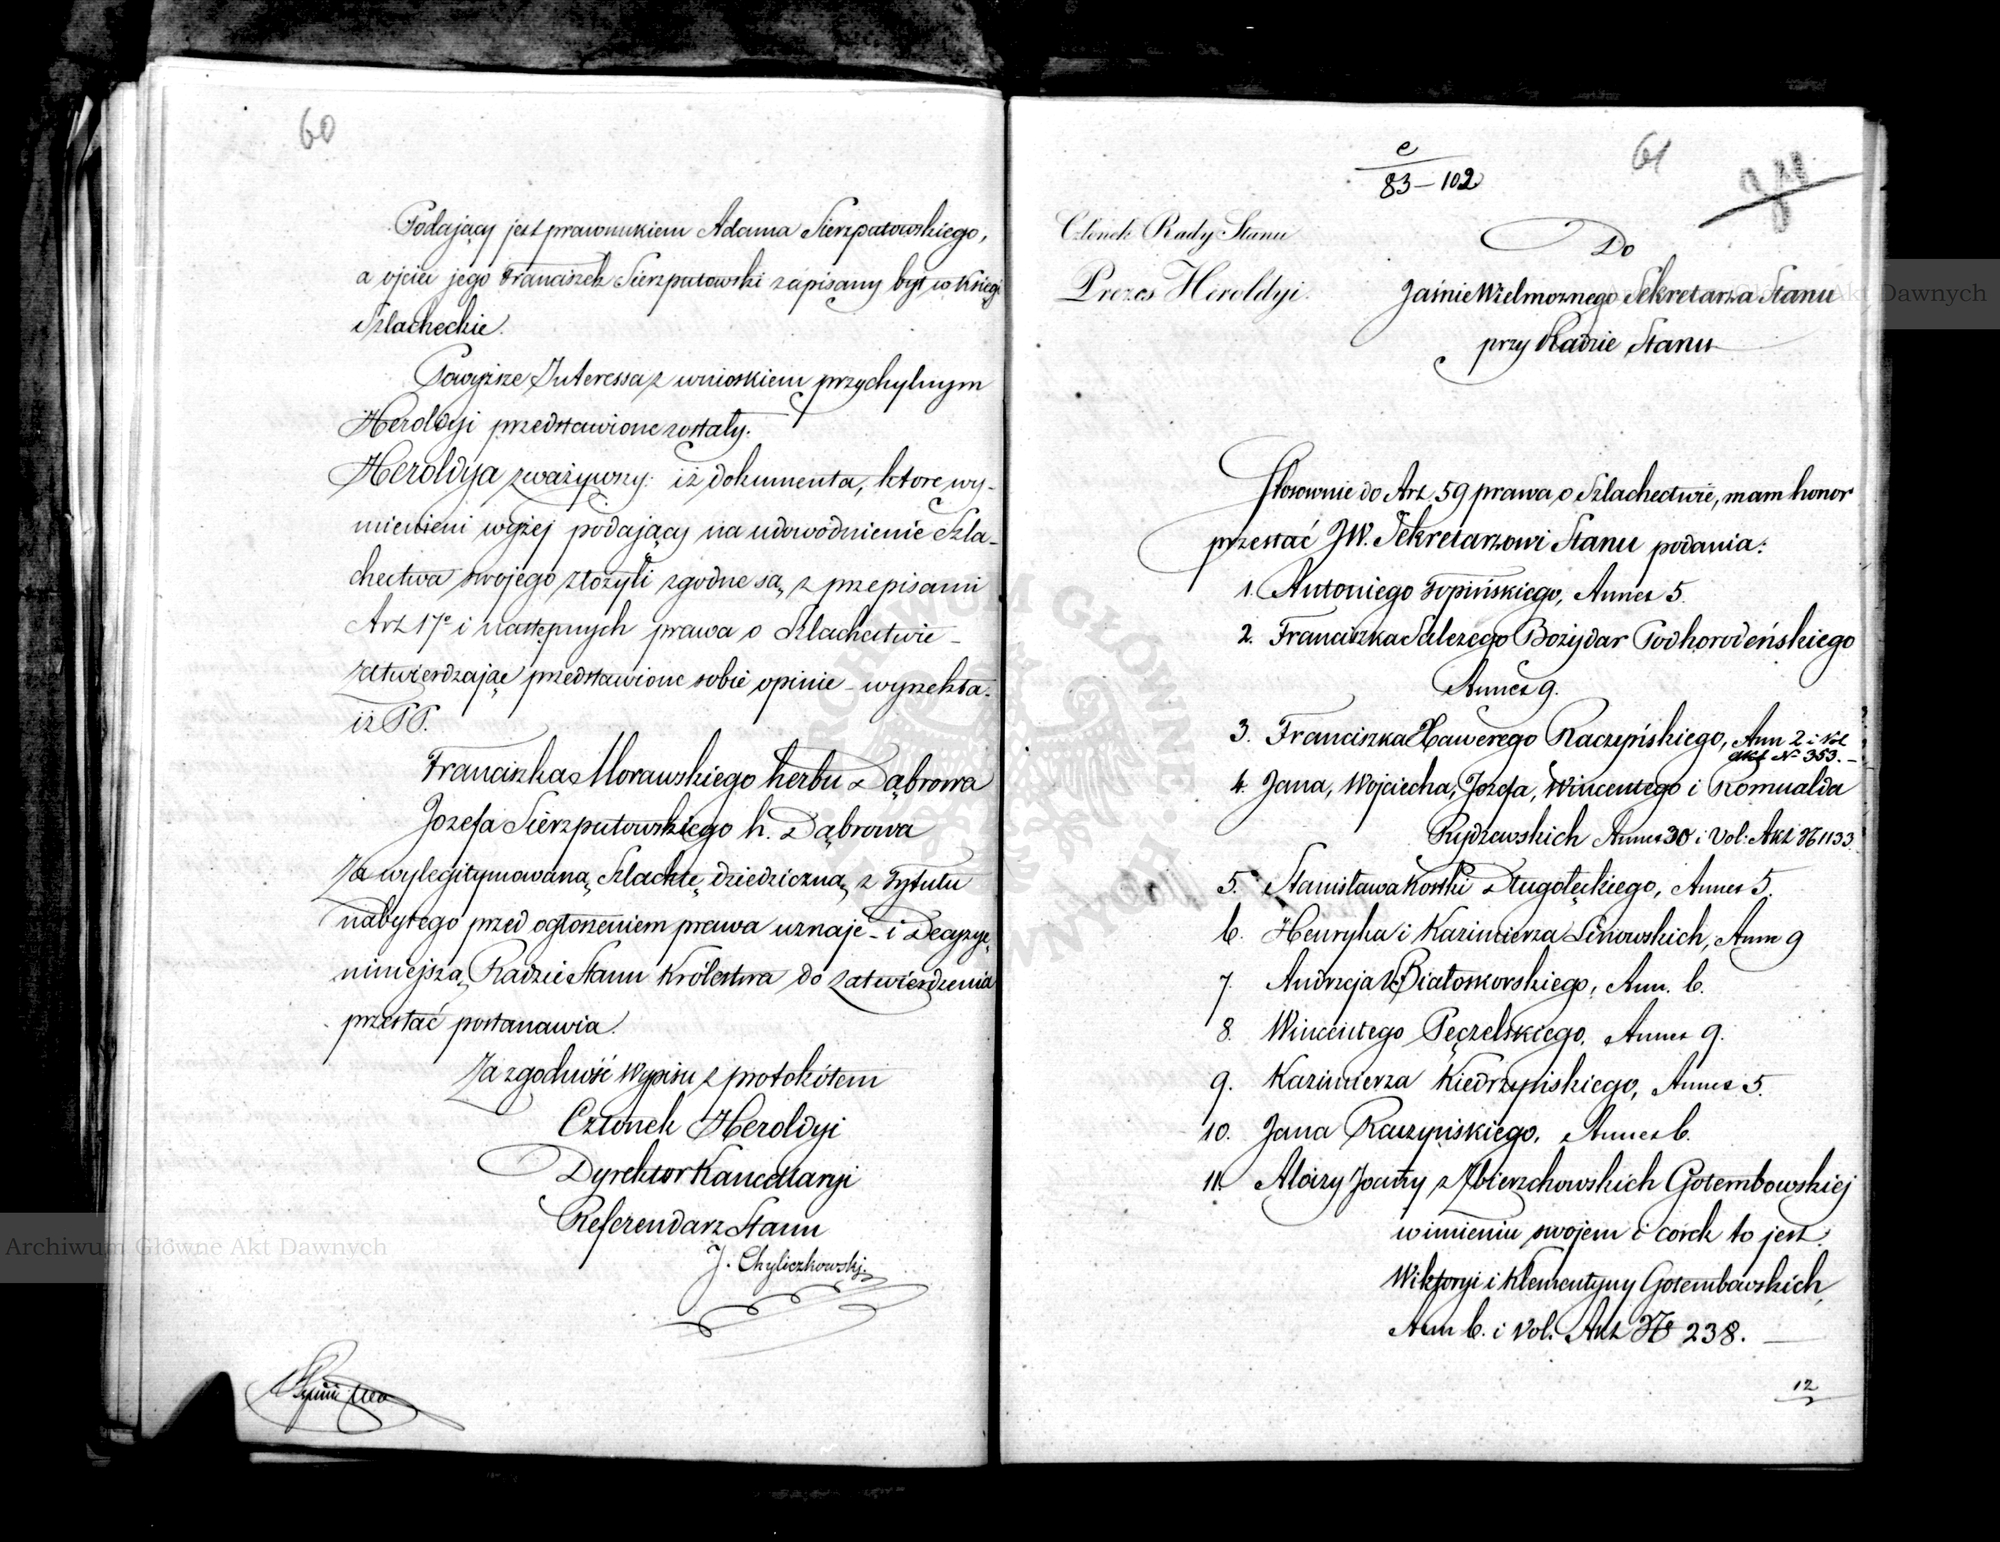 60
Podający jest prawnukiem Adama Sierzputowskiego,
a ojciec jego Franciszek Sierzputowski zapisany był w Księgi
Szlacheckie.
Powyższe Interessa z wnioskiem przychylnym
Heroldyi przedstawione zostały.
Heroldya zważywszy: iż dokumenta, które wy-
mienieni wyżej podający na udowodnienie Szla-
chectwa swojego złożyli zgodne są, z przepisami
Art 17º i następnych prawa o Szlachectwie -
zatwierdzając przedstawione sobie opinie - wyrzekła.
iż PP.
Franciszka Morawskiego herbu Dąbrowa
Jozefa Sierzputowskiego h. Dąbrowa
Za wylegitymowaną Szlachtę dziedziczną, z tytułu
nabytego przed ogłoszeniem prawa uznaje - i Decyzyę
niniejszą, Radzie Stanu Królestwa do zatwierdzenia
przesłać postanawia.
Za zgodność Wypisu z protokółem
Członek Heroldyi
Dyrektor Kancellaryi
Referendarz Stanu
J. Chyliczkowski
61
e
83 – 102
Członek Rady Stanu
Prezes Heroldyi.
Do
JaśnieWielmożnego Sekretarza Stanu
przy Radzie Stanu
Stosownie do Art. 59 prawa o Szlachectwie, mam honor
przesłać JW. Sekretarzowi Stanu podania:
1. Antoniego Topińskiego, Annex 5.
2. Franciszka Salezego Bożydar Podhorodeńskiego
Annex 9.
3. Franciszka Xawerego Raczyńskiego, Ann 2 i Vol
akt Nº 353. –
4. Jana, Wojciecha, Jozefa, Wincentego i Romualda
Rydzewskich Annex 30 i Vol: Akt Nº 1133.
5. Stanisława Kostki Długołęckiego, Annex 5.
6. Henryka i Kazimierza Linowskich, Ann 9
7. Andrzeja Białoskorskiego, Ann. 6.
8. Wincentego Pęczelskiego, Annex 9.
9. Kazimierza Kiedrzyńskiego, Annex 5.
10. Jana Raczyńskiego, Annex 6.
11. Aloizy Joanny z Zbierzchowskich Gołembowskiej
w imieniu swojem i córek to jest
Wiktoryi i Klementyny Gołembowskich,
Ann 6. i Vol. Akt Nº 238. –
12
Archiwum Główne Akt Dawnych
ARCHIWUM GŁÓWNE AKT DAWNYCH
Archiwum Główne Akt Dawnych